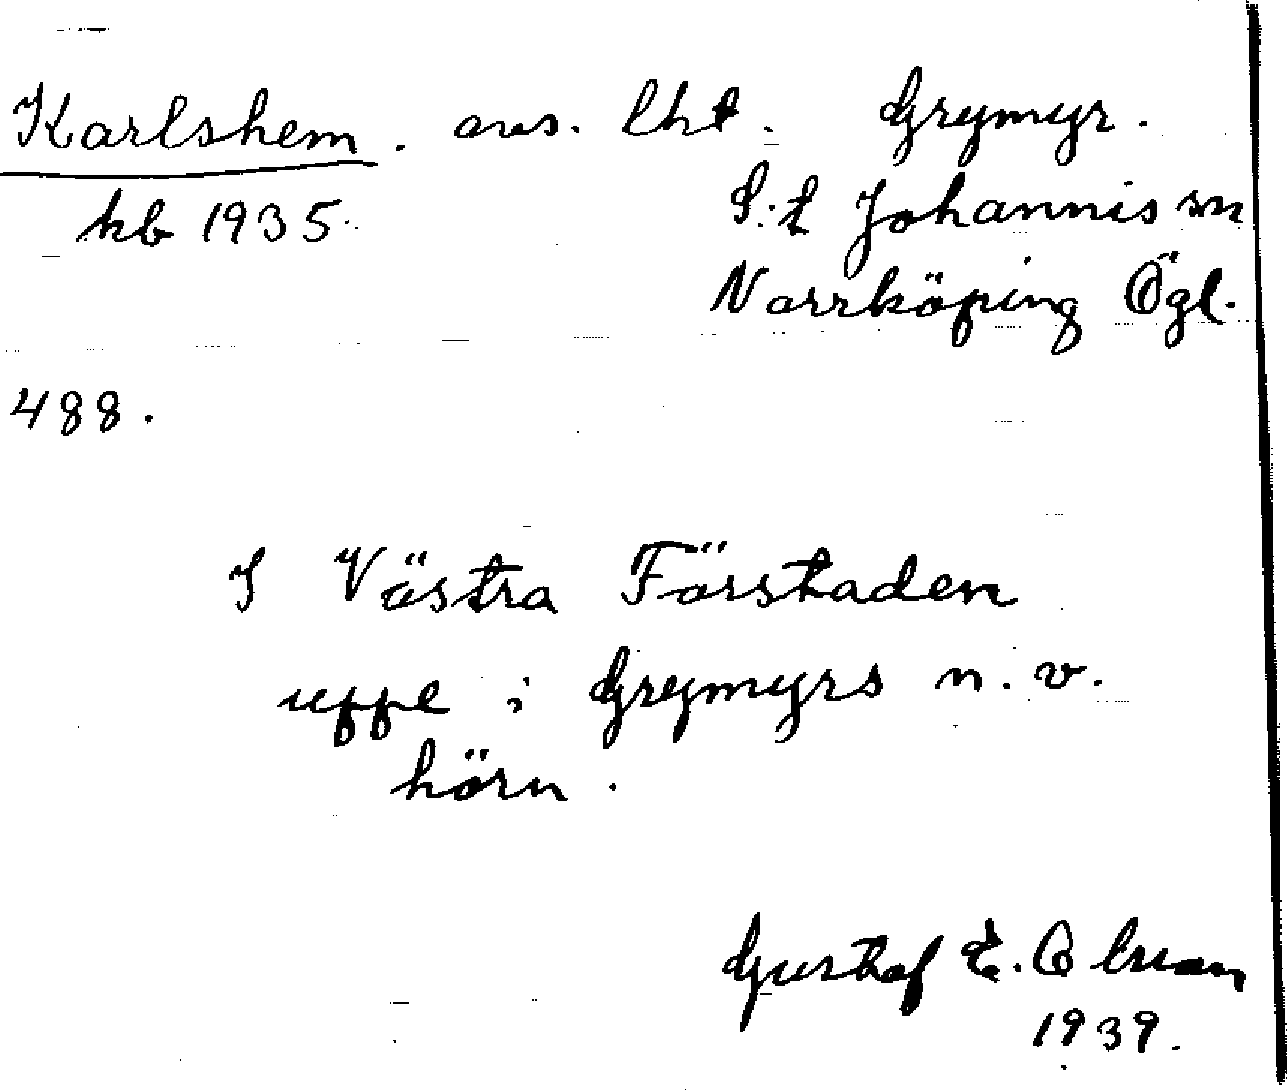 Karlshem. avs. lht. Grymyr.
kb 1935. S:t Johannis sn
Norrköping Ögl.
488.
I Västra Förstaden
uppe i Grymyrs n.v.
hörn.
Gustaf E.
1939.